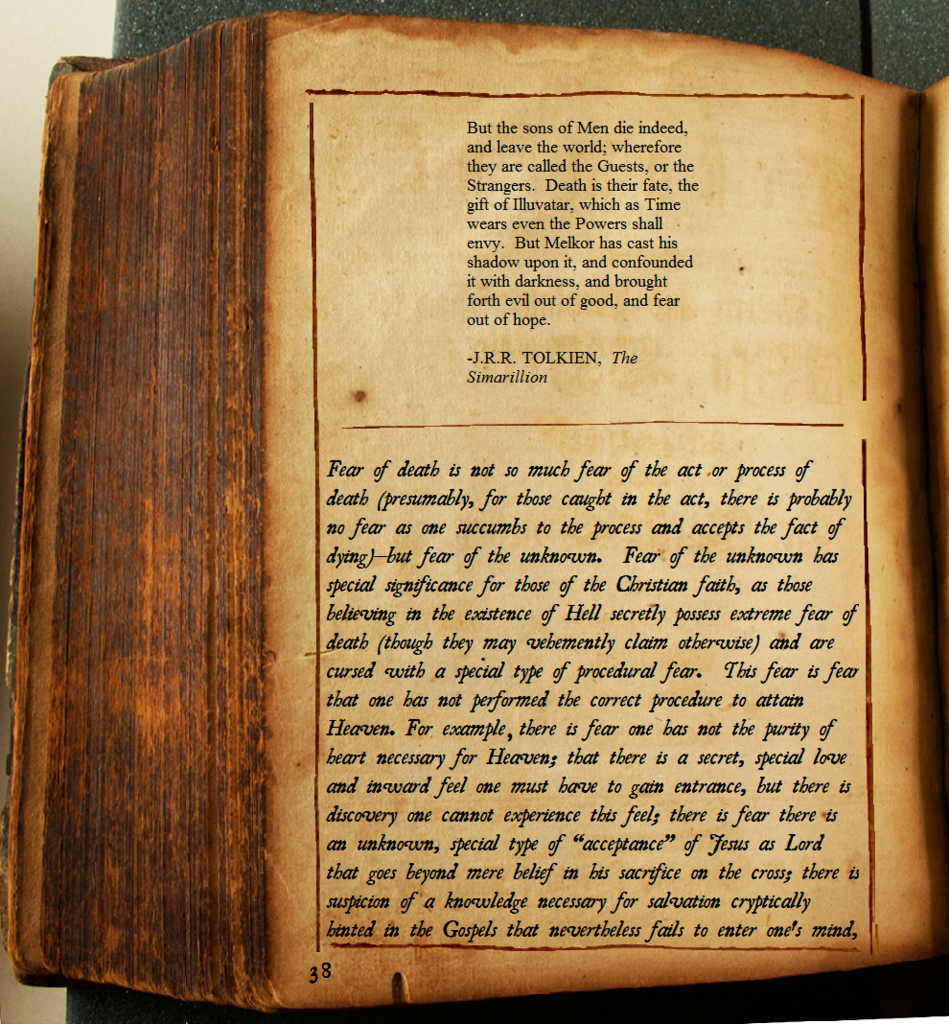 But the sons of Men die indeed,
and leave the world; wherefore
they are called the Guests, or the
Strangers.  Death is their fate, the
gift of Illuvatar, which as Time
wears even the Powers shall
envy.  But Melkor has cast his
shadow upon it, and confounded
it with darkness, and brought
forth evil out of good, and fear
out of hope.
-J.R.R. TOLKIEN,  The
Simarillion
Fear of death is not so much fear of the act or process of
death (presumably, for those caught in the act, there is probably
no fear as one succumbs to the process and accepts the fact of
dying)—but fear of the unknown.  Fear of the unknown has
special significance for those of the Christian faith, as those
believing in the existence of Hell secretly possess extreme fear of
death (though they may vehemently claim otherwise) and are
cursed with a special type of procedural fear.  This fear is fear
that one has not performed the correct procedure to attain
Heaven. For example, there is fear one has not the purity of
heart necessary for Heaven; that there is a secret, special love
and inward feel one must have to gain entrance, but there is
discovery one cannot experience this feel; there is fear there is
an unknown, special type of “acceptance” of Jesus as Lord
that goes beyond mere belief in his sacrifice on the cross; there is
suspicion of a knowledge necessary for salvation cryptically
hinted in the Gospels that nevertheless fails to enter one's mind,
38